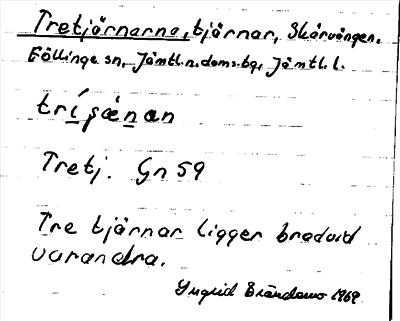 Tretjärnarna, tjärnar, Skärvången.
Föllinge sn, Jämtl.n.doms.bg, Jämtl.l.
tríʂænan
Tretj. Gn 59
Tre tjärnar ligger bredvid
varandra.
Ingrid Brändemo 1969